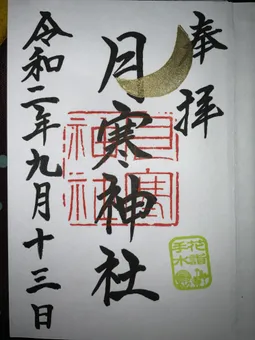 奉拝
月寒神社
令和二年九月十三日
月寒
神社
花詣
手水